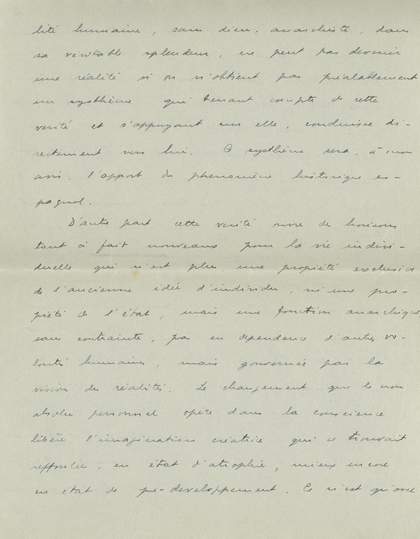 lité humaine, sans dieu, anarchiste, dans
sa véritable splendeur, ne peut pas devenir
une réalité si on n'obtient pas préalablement
un système qui tenant compte de cette
verité et s'appuyant sur elle, conduise di-
rectement vers lui. Ce système sera, à mon
avis, l'apport du phenomène historique es-
pagnol.
D'autre part cette verité ouvre de horizons
tout à fait nouveaux pour la vie indivi-
duelle qui n'est plus une propriété exclusive
de l'ancienne idée d'individu, ni une pro-
priété de l'état, mais une fonction anarchique
sans contrainte, pas en dependence d'autres vo-
lontés humaines, mais gouvernée par la
vision des réalités. Le changement que le non
absolu personnel opère dans la conscience
libère l'imagination créatrice qui se trouvait
refoulée, en état d'atrophie, mieux encore
en état de pre-developpement. Ce n'est qu'une